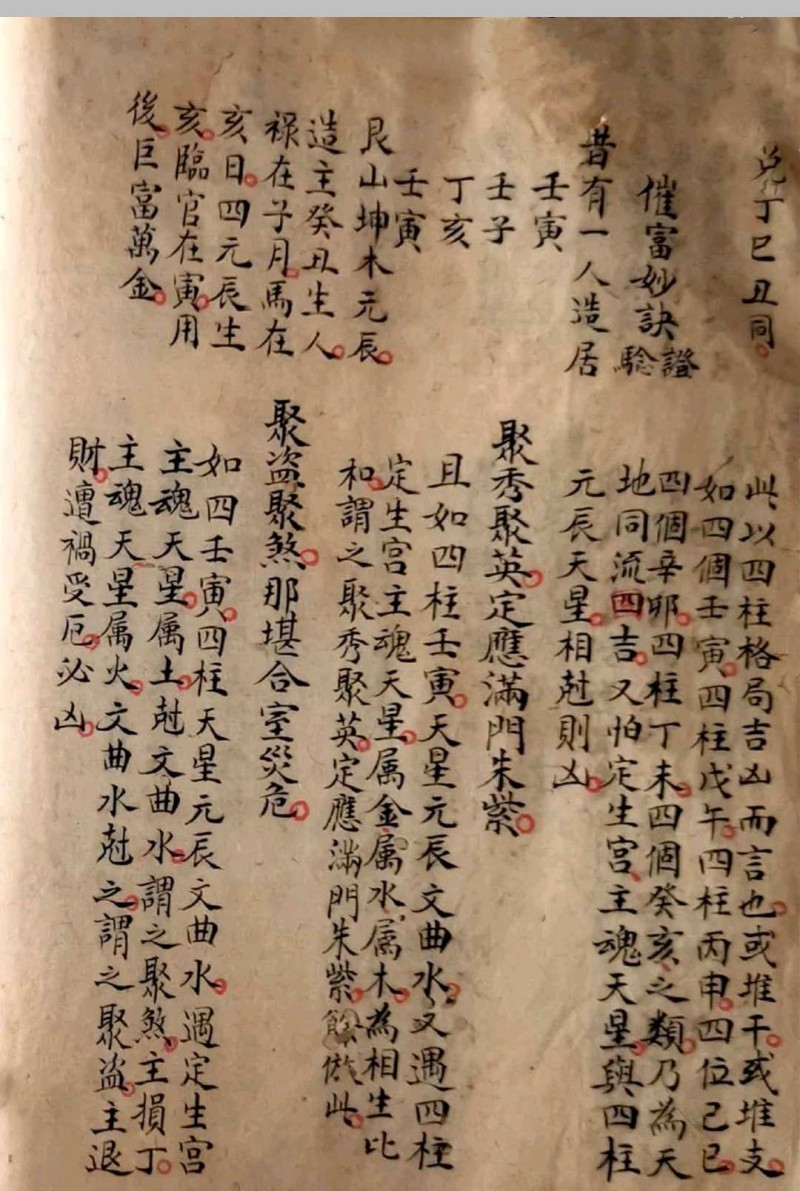 兌丁巳丑同。
催富妙訣證驗
昔有一人造居
壬寅
壬子
丁亥
壬寅
艮山坤木元辰。
造主癸丑生人。
禄在子月。馬在
亥日。四元辰生
亥。臨官在寅。用
後巨富萬金。
此以四柱格局吉凶而言也。或堆干。或堆支。
如四個壬寅。四柱戊午。四柱丙申。四位己巳。
四個辛夘。四柱丁未。四個癸亥之類。乃為天
地同流四吉。又怕定生宮主魂天星與四柱
元辰天星。相尅則凶。
聚秀聚英。定應滿門朱紫。
且如四柱壬寅。天星元辰文曲水。又遇四柱
定生宮主魂天星。属金属水属木。為相生比
和。謂之聚秀聚英。定應滿門朱紫。餘倣此。
聚盜聚煞。那堪合室災危。
如四壬寅。四柱天星元辰文曲水。遇定生宮
主魂天星。属土。尅文曲水。謂之聚煞。主損丁。
主魂天星属火。文曲水尅之。謂之聚盜。主退
財。遭禍受厄。必凶。